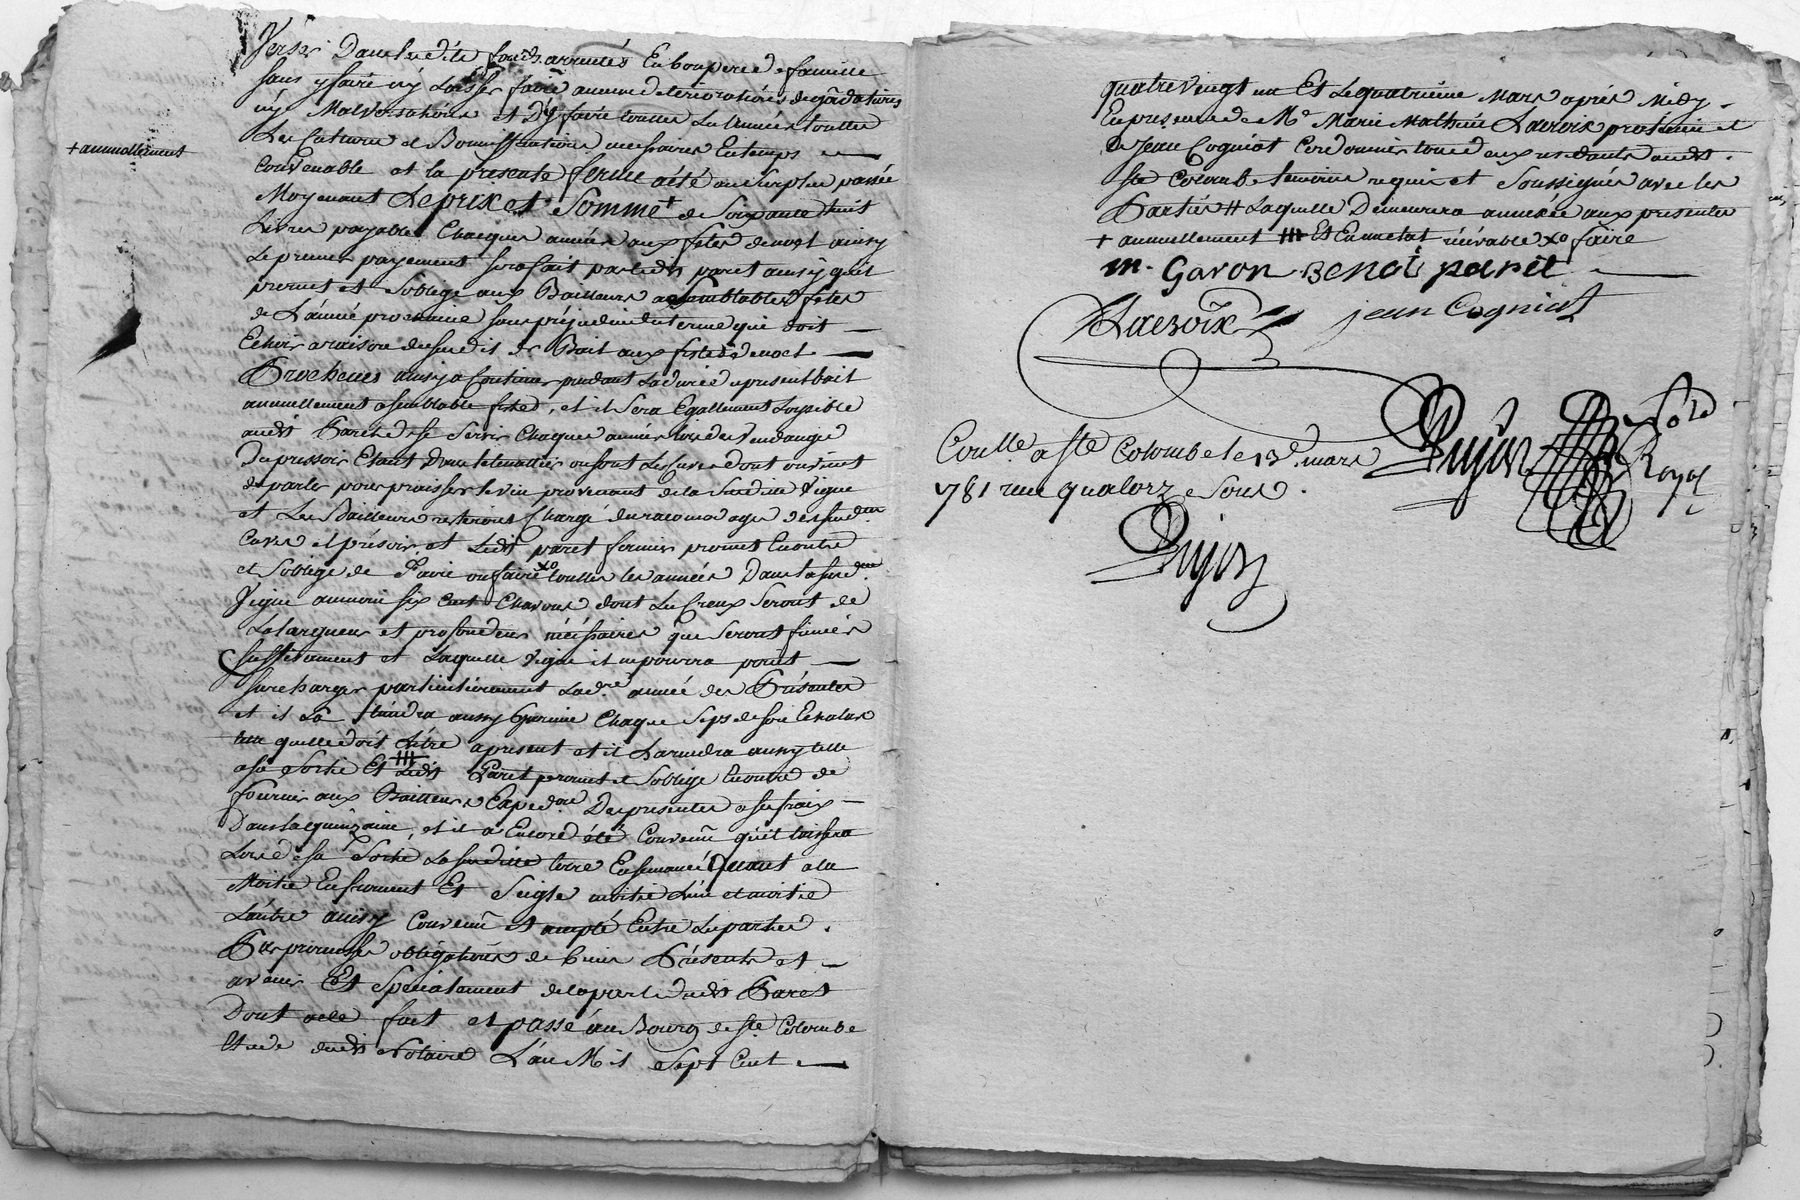 Verser Dans lesdits fonds arrentés En bon pere de famille
sans y faire ny Laisser faire aucune deteriorations degradations
ny Malversations et d'y faire touttes Les Années touttes
Les Cultures et Bonniffications necessaires En temps
+ annuellement
Convenable et la presente ferme a été au Surplus passée
Moyenant Le prix et Somme + de Soixante huit
Livres payable Chacques années aux fetes de noel ainsy
Le premier payement sera fait par ledt paret ainsy qu'il
promet et S'oblige aux Bailleurs a Semblables fetes
de L'année prochaine sans préjudice du terme qui doit
Echoir a raison du susdit Bail aux fetes de noel
Prochenes ainsy a Continuer pendant La durée du present bail
annuellement a semblable fetes, et il Sera Egallement Loysible
audt Paret de se Servir Chaques années lors des vendanges
Du pressoir Etant Dans le cuvier ou sont Les Cuves dont on vient
de parler pour praisser le vin provenant de la Susditte Vigne
et Les Bailleurs resteront Chargé du racomodages desd.
Cuves et présoir, et Ledt paret fermier promet En outre
et S'oblige de faire ou faire xo touttes les années Dans la susd.
Vigne au moin six Cent Chavons dont Les Creux Seront de
La largueur et profondeur nécessaires que Seront fumés
suffisament et Laquelle Vigne il ne pourra point
surcharger particulierement La dre année des Présentes
et il La tiendra aussy Garnie Chaque Seps de son Echalas
telle quelle doit L'être apresent et il La rendra aussy telle
a sa Sortie Et Ledt Paret promet et S'oblige En outre de
fournir aux Bailleurs Expedon Des presentes a ses fraix
Dans la quinzaine, et il a Encore été Convenu qu'il laissera
Lors de sa Sortie La susditte terre Ensemancé Quant a la
Moitié En froment Et Seigle moitié L'un et moitié
L'autre ainsy Convenu et accepté Entre Les parties.
Par promesses obligations de biens Présents et
avenir Et Specialement de la part dudt Paret
Dont acte fait et passé au Bourg de Ste Colombe
Etude dudt Notaire L'an Mil Sept Cent
quatre Vingt un Et Le quatrieme Mars après Midy
En presence de Me Marie Mathieu Lacroix praticien et
de Jean Cogniat Cordonnier tous deux residants audt
Ste Colombe temoins requis et Soussignés avec les
Parties # Laquelle Demeurera annexée aux presentes
+ annuellement Et En un etat recevable xo faire
m. Garon Benoi paret
Lacroix jean Cogniat
Dujon
Con.lle a Ste Colombe le 13e mars
1781 reçu quatorze Sous.
Dujon